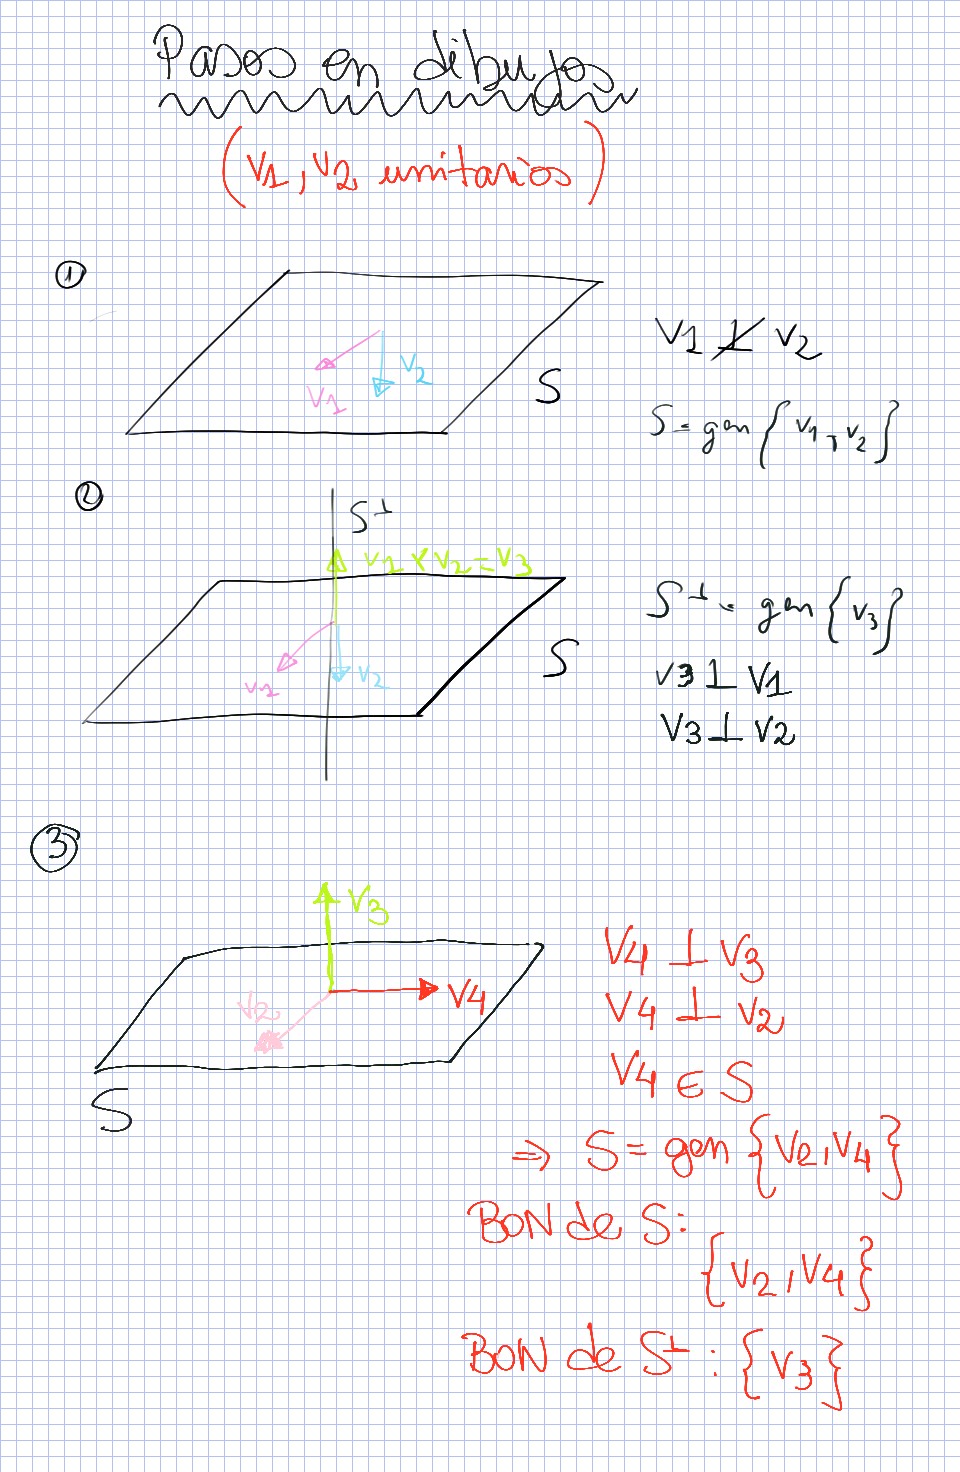 Pasos en dibujos
(v1, v2 unitarios)
①
v1 ⊥̸ v2
v1
v2
S
S = gen { v1, v2 }
②
S⊥
v1 × v2 = v3
S⊥ = gen { v3 }
v1
v2
S
v3 ⊥ v1
v3 ⊥ v2
③
v3
v4 ⊥ v3
v2
v4
v4 ⊥ v2
v4 ∈ S
S
⇒ S = gen { v2, v4 }
BON de S:
{ v2, v4 }
BON de S⊥ : { v3 }